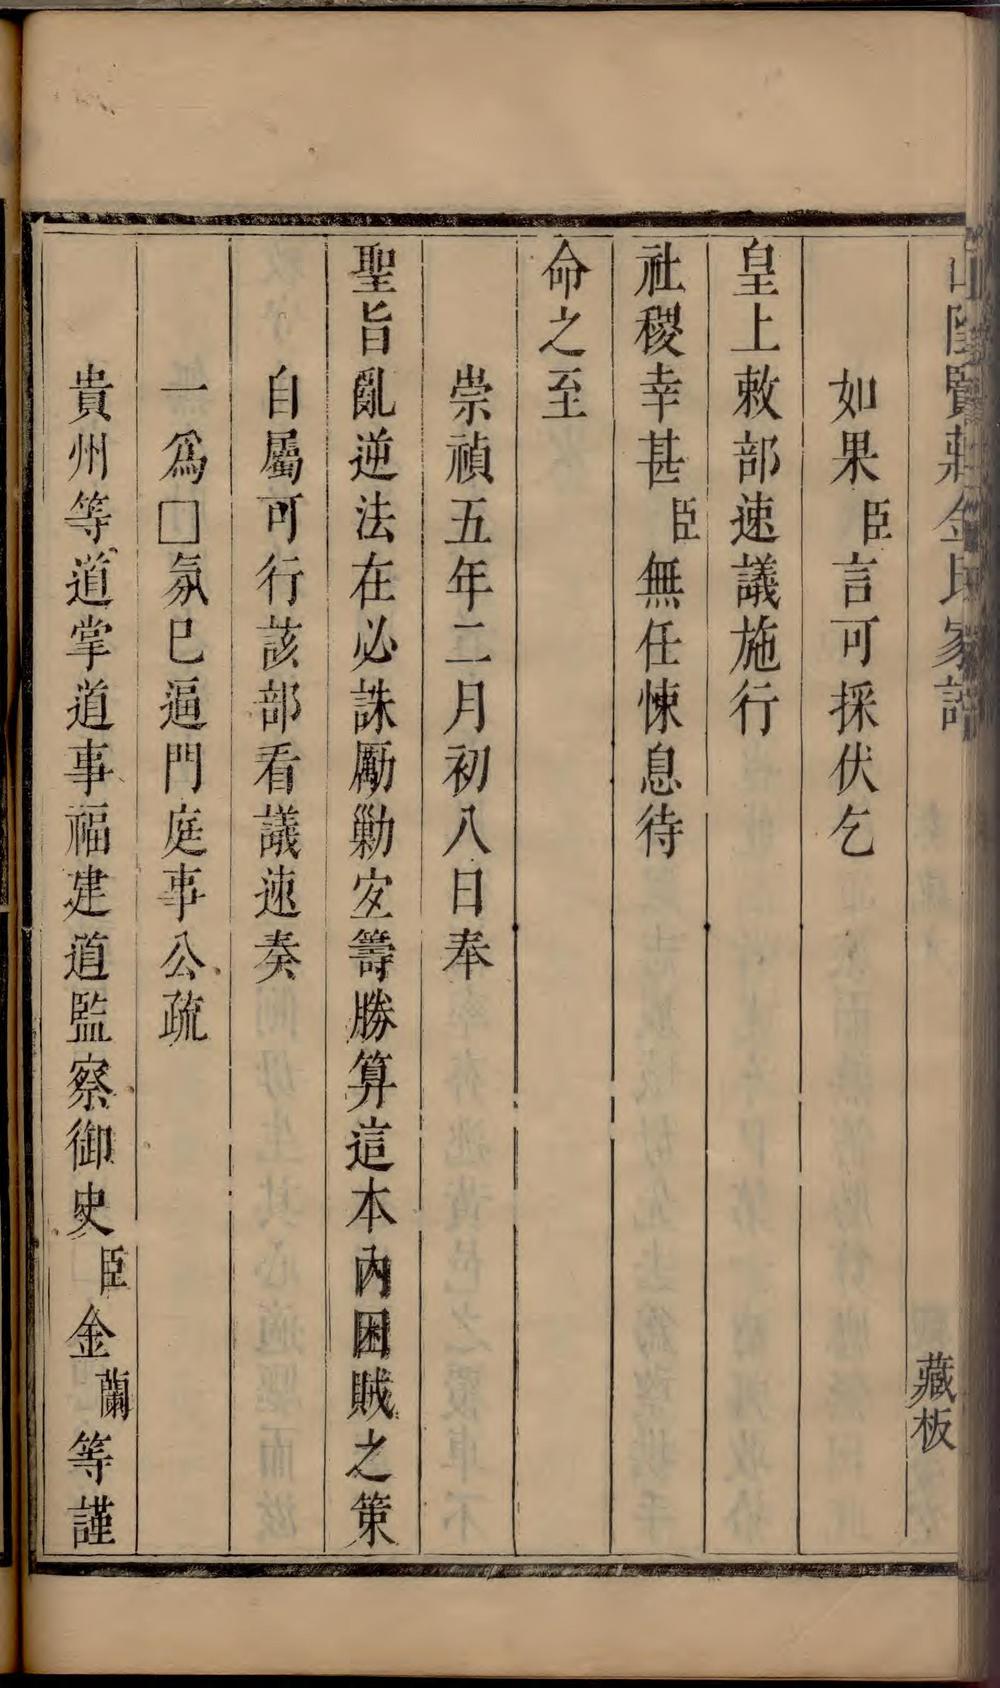 山陰賢莊金氏家譜
藏板
如果臣言可採伏乞
皇上敕部速議施行
社稷幸甚臣無任悚息待
命之至
崇禎五年二月初八日奉
聖旨亂逆法在必誅勵勦㝎籌勝算這本內困賊之策
自屬可行該部看議速奏
一爲□氛巳逼門庭事公疏
貴州等道掌道事福建道監察御史臣金蘭等謹